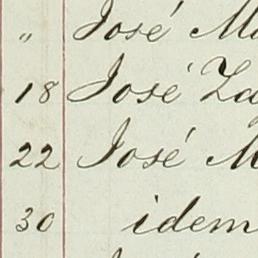 " José M
18 José Za
22 José M
30 idem